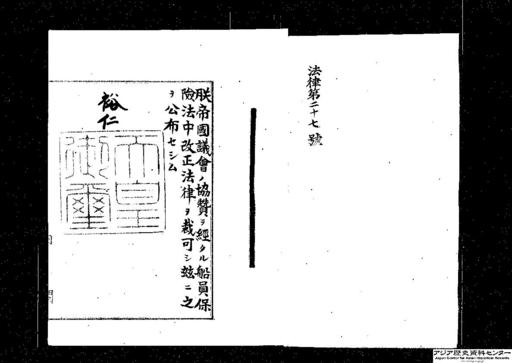 法律第二十七號
朕帝國議會ノ協贊ヲ經タル船員保
險法中改正法律ヲ裁可シ玆ニ之
ヲ公布セシム
裕仁
天皇
御璽
アジア歴史資料センター
Japan Center for Asian Historical Records